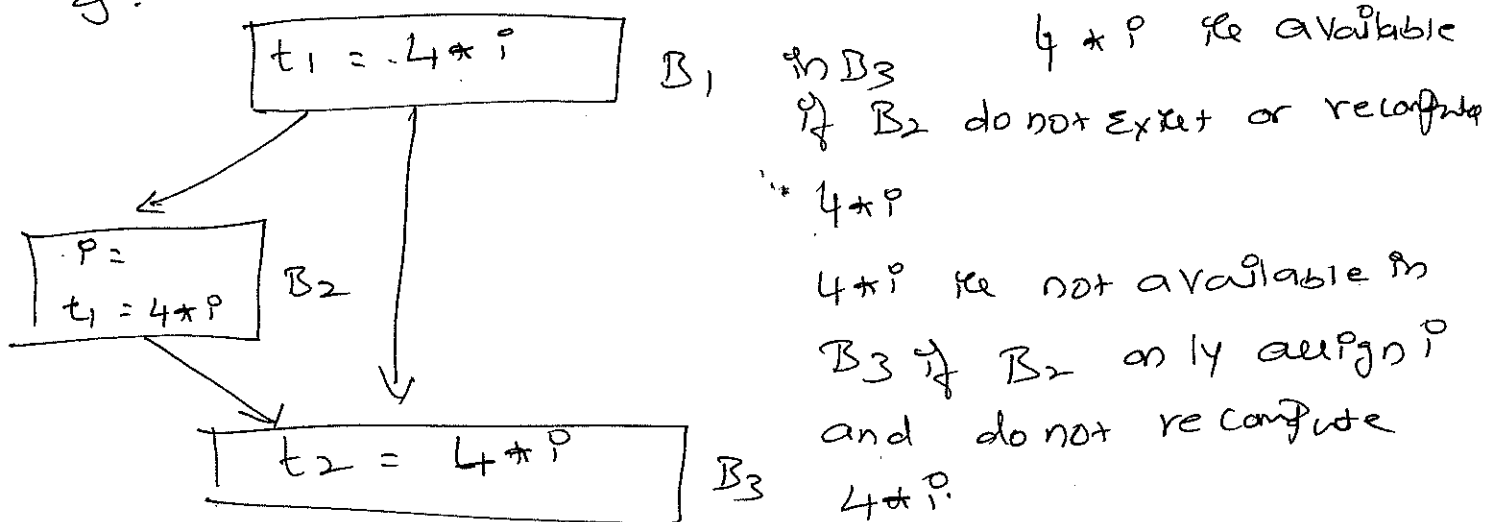 g.
t1 = 4 * i
B1
i =
t1 = 4 * i
B2
t2 = 4 * i
B3
4 * i is available
in B3
if B2 do not Exist or recompute
4 * i
4 * i is not available in
B3 if B2 only assign i
and do not recompute
4 * i.